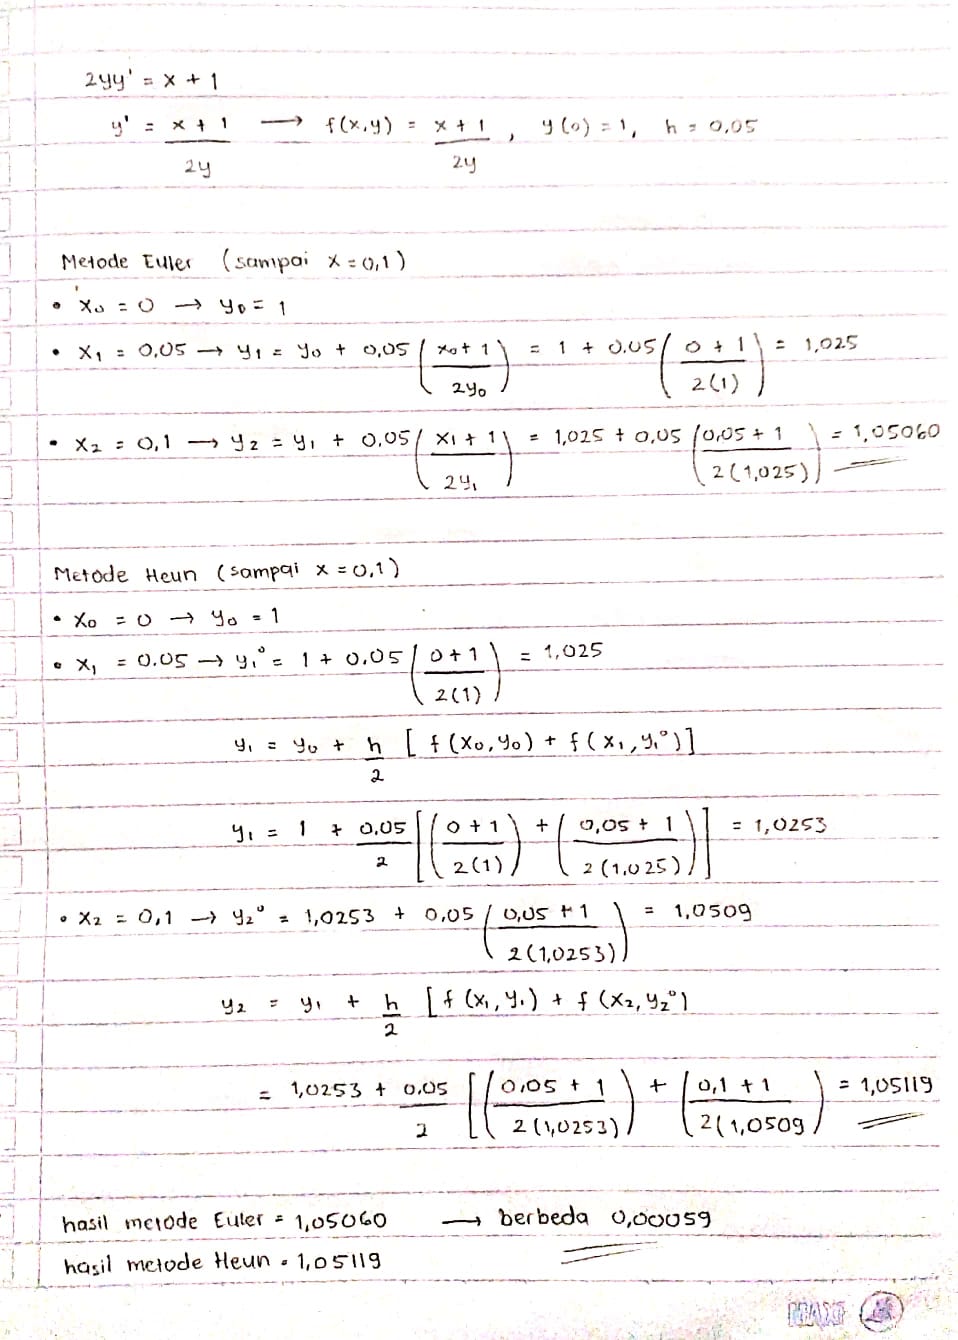 2yy' = x + 1
y' = x + 1 / 2y → f(x,y) = x + 1 / 2y , y(0) = 1, h = 0,05
Metode Euler (sampai x = 0,1)
• x₀ = 0 → y₀ = 1
• x₁ = 0,05 → y₁ = y₀ + 0,05 (x₀ + 1 / 2y₀) = 1 + 0.05 (0 + 1 / 2(1)) = 1,025
• x₂ = 0,1 → y₂ = y₁ + 0,05 (x₁ + 1 / 2y₁) = 1,025 + 0,05 (0,05 + 1 / 2(1,025)) = 1,05060
Metode Heun (sampai x = 0,1)
• x₀ = 0 → y₀ = 1
• x₁ = 0.05 → y₁⁰ = 1 + 0.05 (0 + 1 / 2(1)) = 1,025
y₁ = y₀ + h / 2 [f(x₀,y₀) + f(x₁,y₁⁰)]
y₁ = 1 + 0,05 / 2 [(0 + 1 / 2(1)) + (0,05 + 1 / 2(1,025))] = 1,0253
• x₂ = 0,1 → y₂⁰ = 1,0253 + 0,05 (0,05 + 1 / 2(1,0253)) = 1,0509
y₂ = y₁ + h / 2 [f(x₁,y₁) + f(x₂,y₂⁰)
= 1,0253 + 0,05 / 2 [(0,05 + 1 / 2(1,0253)) + (0,1 + 1 / 2(1,0509) = 1,05119
hasil metode Euler = 1,05060 → berbeda 0,00059
hasil metode Heun = 1,05119